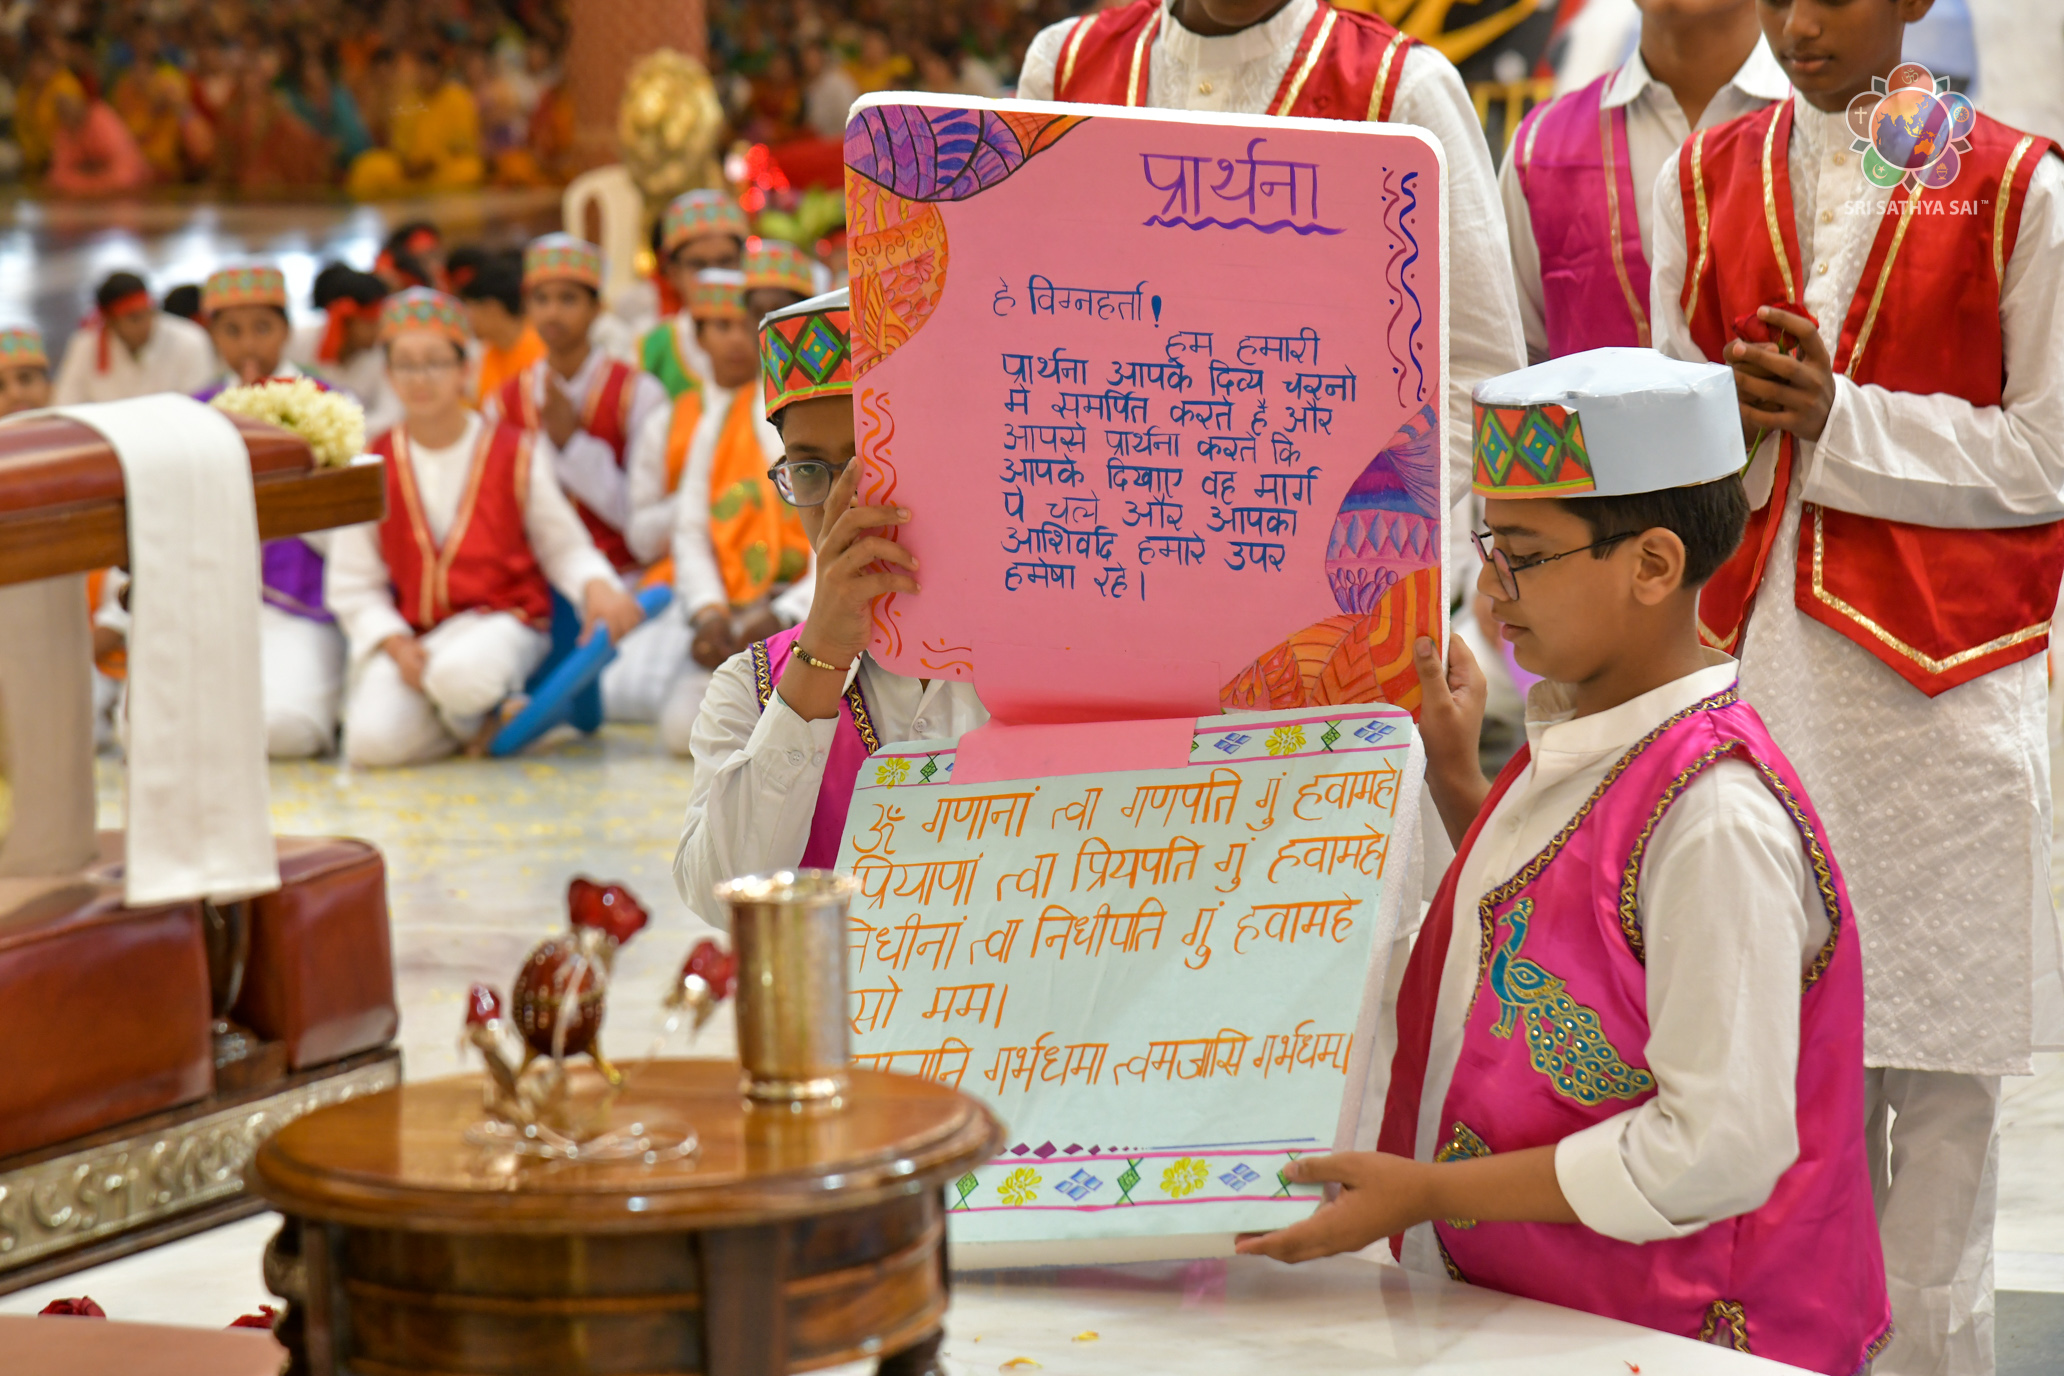 प्रार्थना
हे विग्नहर्ता!
हम हमारी
प्रार्थना आपके दिव्य चरनो
में समर्पित करते है और
आपसे प्रार्थना करते कि
आपके दिखाए वह मार्ग
पे चले और आपका
आशिर्वाद हमारे उपर
हमेषा रहे।
ॐ गणानां त्वा गणपति गुं हवामहे।
प्रियाणां त्वा प्रियपति गुं हवामहे।
निधीनां त्वा निधीपति गुं हवामहे
सो मम।
गर्भधमा त्वमजासि गर्भधम।
SRI SATHYA SAI™